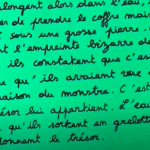 longent alors dans l'eau,
er de prendre le coffre mais
t sous une grosse pierre.
nt l'empreinte bizarre de
ils constatent que c'est
qu'ils avaient vue
maison du monstre. C'est
résor lui appartient. L'eau
qu'ils sortent en grelotta
donnant le trésor.